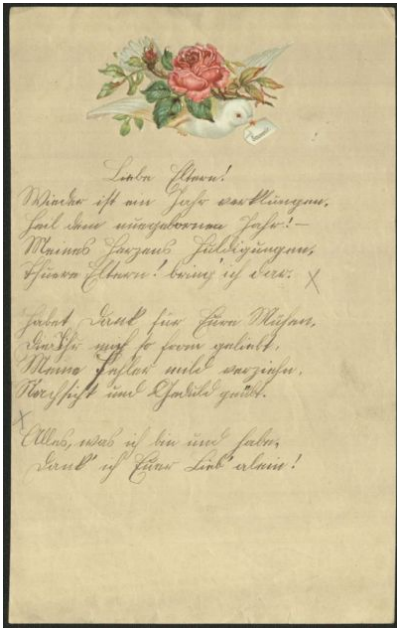 Liebe Eltern!
Wieder ist ein Jahr verklungen,
Heil dem neugebornen Jahr! –
Meines Herzens Huldigungen,
Theuere Eltern! bring' ich dar.
Habet Dank für Eure Mühen,
Die Ihr mich so fromm geliebt,
Meine Fehler mild verziehn,
Nachsicht und Geduld geübt.
Alles, was ich bin und habe,
Dank' ich Eurer Lieb' alein!